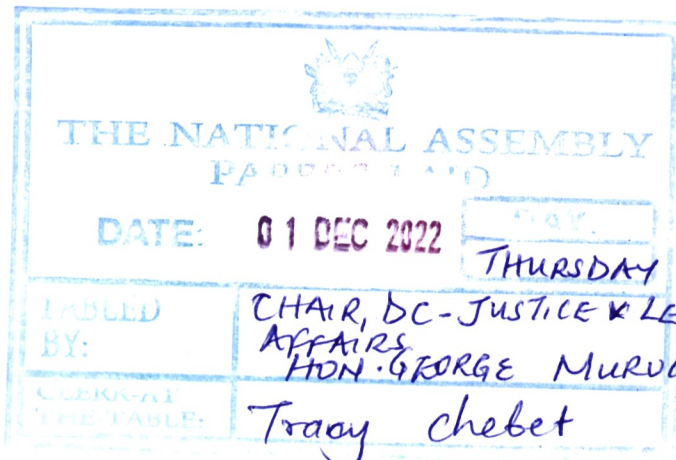 THE NATIONAL ASSEMBLY
PAPERS LAID
DATE: 01 DEC 2022
DAY.
THURSDAY
TABLED BY:
CHAIR, DC-JUSTICE & LE
AFFAIRS
HON. GEORGE MURU
CLERK-AT THE-TABLE:
Tracy Chebet